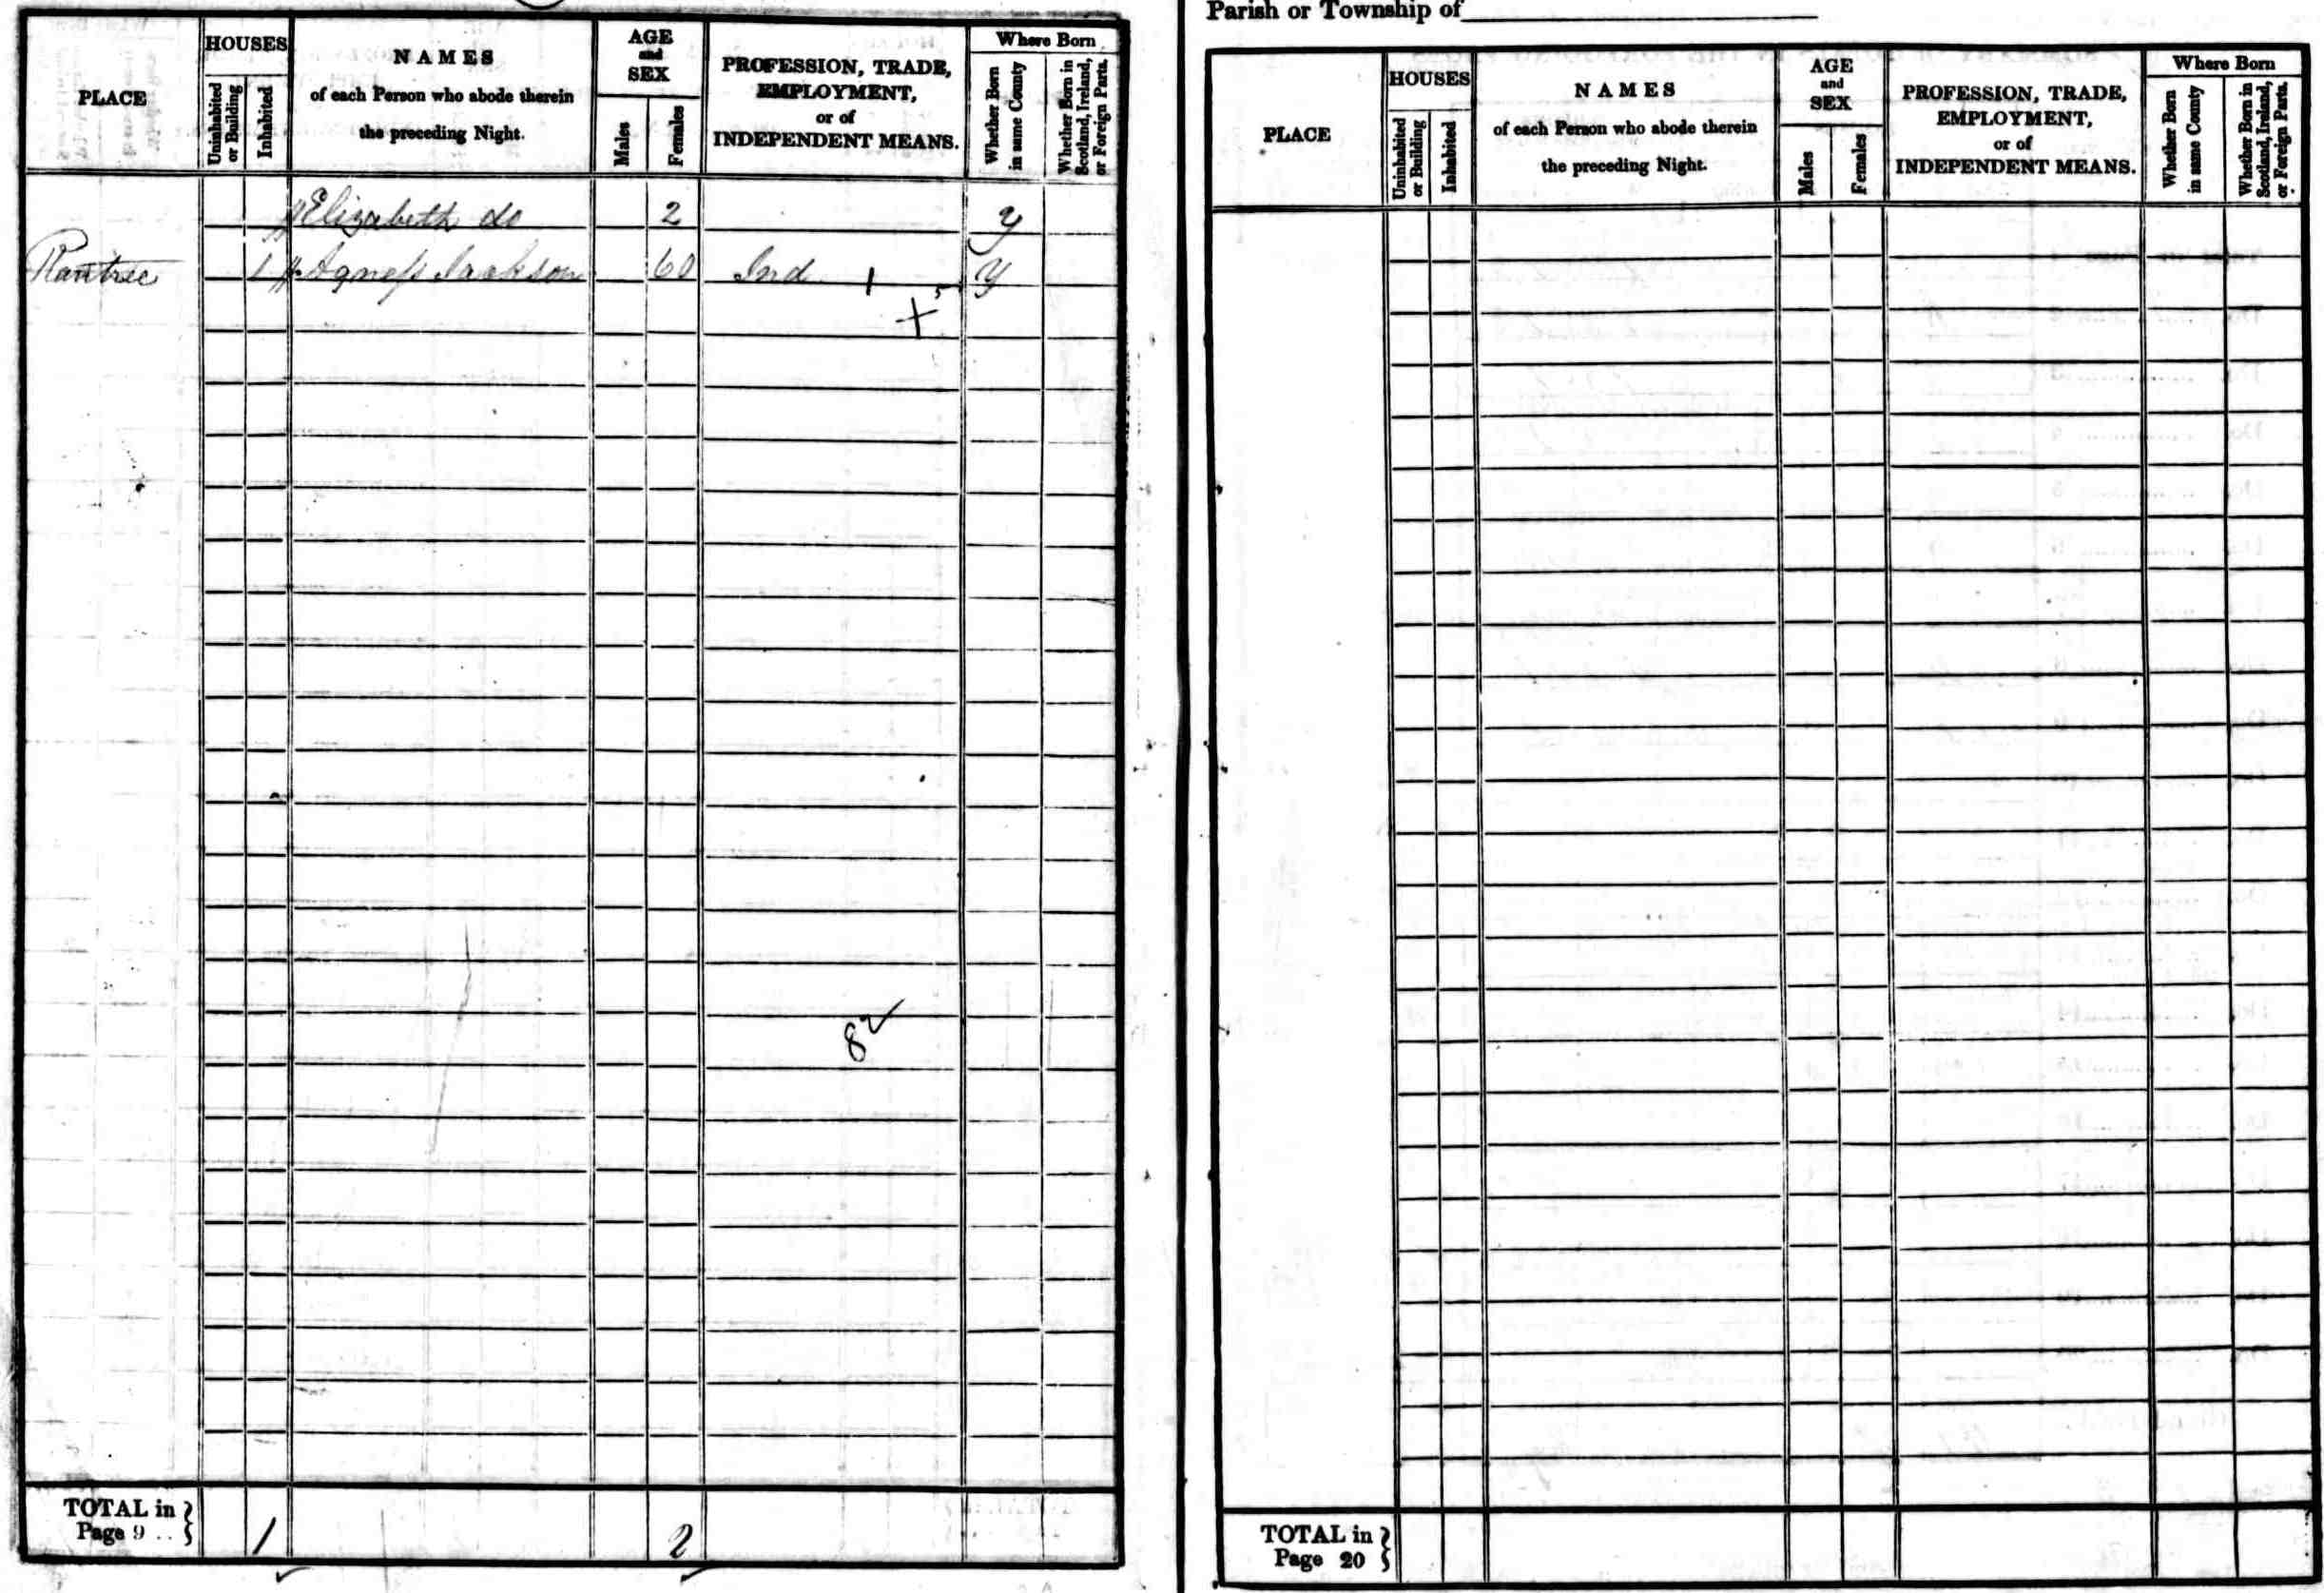 HOUSES
NAMES
AGE
and
SEX
PROFESSION, TRADE,
EMPLOYMENT,
or of
INDEPENDENT MEANS.
Where Born
PLACE
Uninhabited
or Building
Inhabited
of each Person who abode therein
the preceding Night.
Males
Females
Whether Born
in same County
Whether Born in
Scotland, Ireland,
or Foreign Parts.
Elizabeth do 2 y
Rantree 1 Agness Jackson 60 Ind 1 y
82
TOTAL in
Page 9 .. 1 2
Parish or Township of
PLACE
HOUSES
Uninhabited
or Building
Inhabited
NAMES
of each Person who abode therein
the preceding Night.
AGE
and
SEX
Males
Females
PROFESSION, TRADE,
EMPLOYMENT,
or of
INDEPENDENT MEANS.
Where Born
Whether Born
in same County
Whether Born in
Scotland, Ireland,
or Foreign Parts.
TOTAL in
Page 20